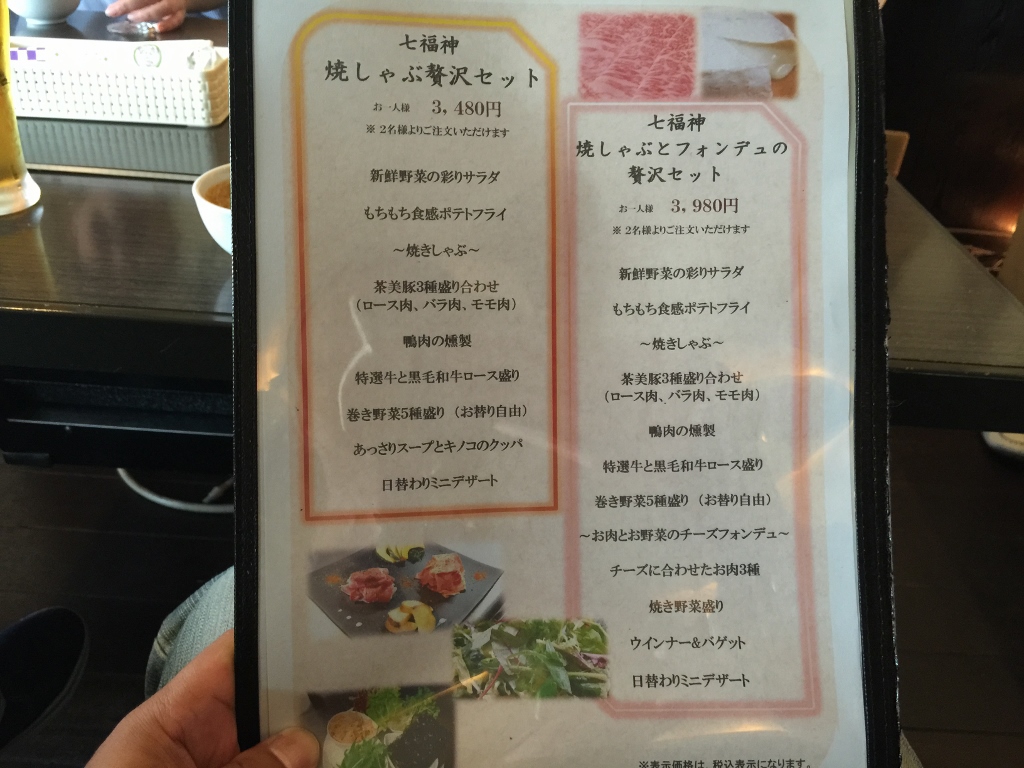 七福神
焼しゃぶ贅沢セット
お一人様 3,480円
※ 2名様よりご注文いただけます
新鮮野菜の彩りサラダ
もちもち食感ポテトフライ
～焼きしゃぶ～
茶美豚3種盛り合わせ
（ロース肉、バラ肉、モモ肉）
鴨肉の燻製
特選牛と黒毛和牛ロース盛り
巻き野菜5種盛り（お替り自由）
あっさりスープとキノコのクッパ
日替わりミニデザート
七福神
焼しゃぶとフォンデュの
贅沢セット
お一人様 3,980円
※ 2名様よりご注文いただけます
新鮮野菜の彩りサラダ
もちもち食感ポテトフライ
～焼きしゃぶ～
茶美豚3種盛り合わせ
（ロース肉、バラ肉、モモ肉）
鴨肉の燻製
特選牛と黒毛和牛ロース盛り
巻き野菜5種盛り（お替り自由）
～お肉とお野菜のチーズフォンデュ～
チーズに合わせたお肉3種
焼き野菜盛り
ウインナー&バゲット
日替わりミニデザート
※表示価格は、税込表示になります。